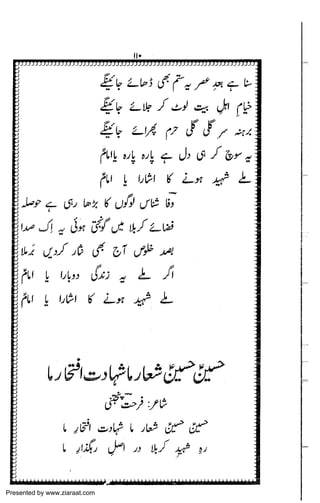 ۱۱۰
سنا ہے بعدِ عصر یہ ستم بھی ڈھائے جائینگے
خیامِ اہلِ بیت لوٹ کر جلائے جائینگے
برہنہ سر گلی گلی حرم پھرائے جائینگے
یہ سوچ کر ہی دل ہے پارہ پارہ یا امامؑ
ملے شہید ہونے کا اشارا یا امامؑ
وفا شناس لوگوں کا بڑھا رہی ہے حوصلہ
فضائے کربلا میں گونجتی ہوئی یہ اِک صدا
بصد خلوص آج بھی نثار کردیں بَرملا
اگر ملے یہ زندگی دوبارا یا امامؑ
ملے شہید ہونے کا اشارا یا امامؑ
حسینؑ حسینؑ شعارِ ما شہادت افتخارِ ما
شاعر: فرحت
حسینؑ حسینؑ شعار ما شہادت افتخارِ ما
رہِ شہیدِ کربلا در اصل رہگذارِ ما
Presented by www.ziaraat.com